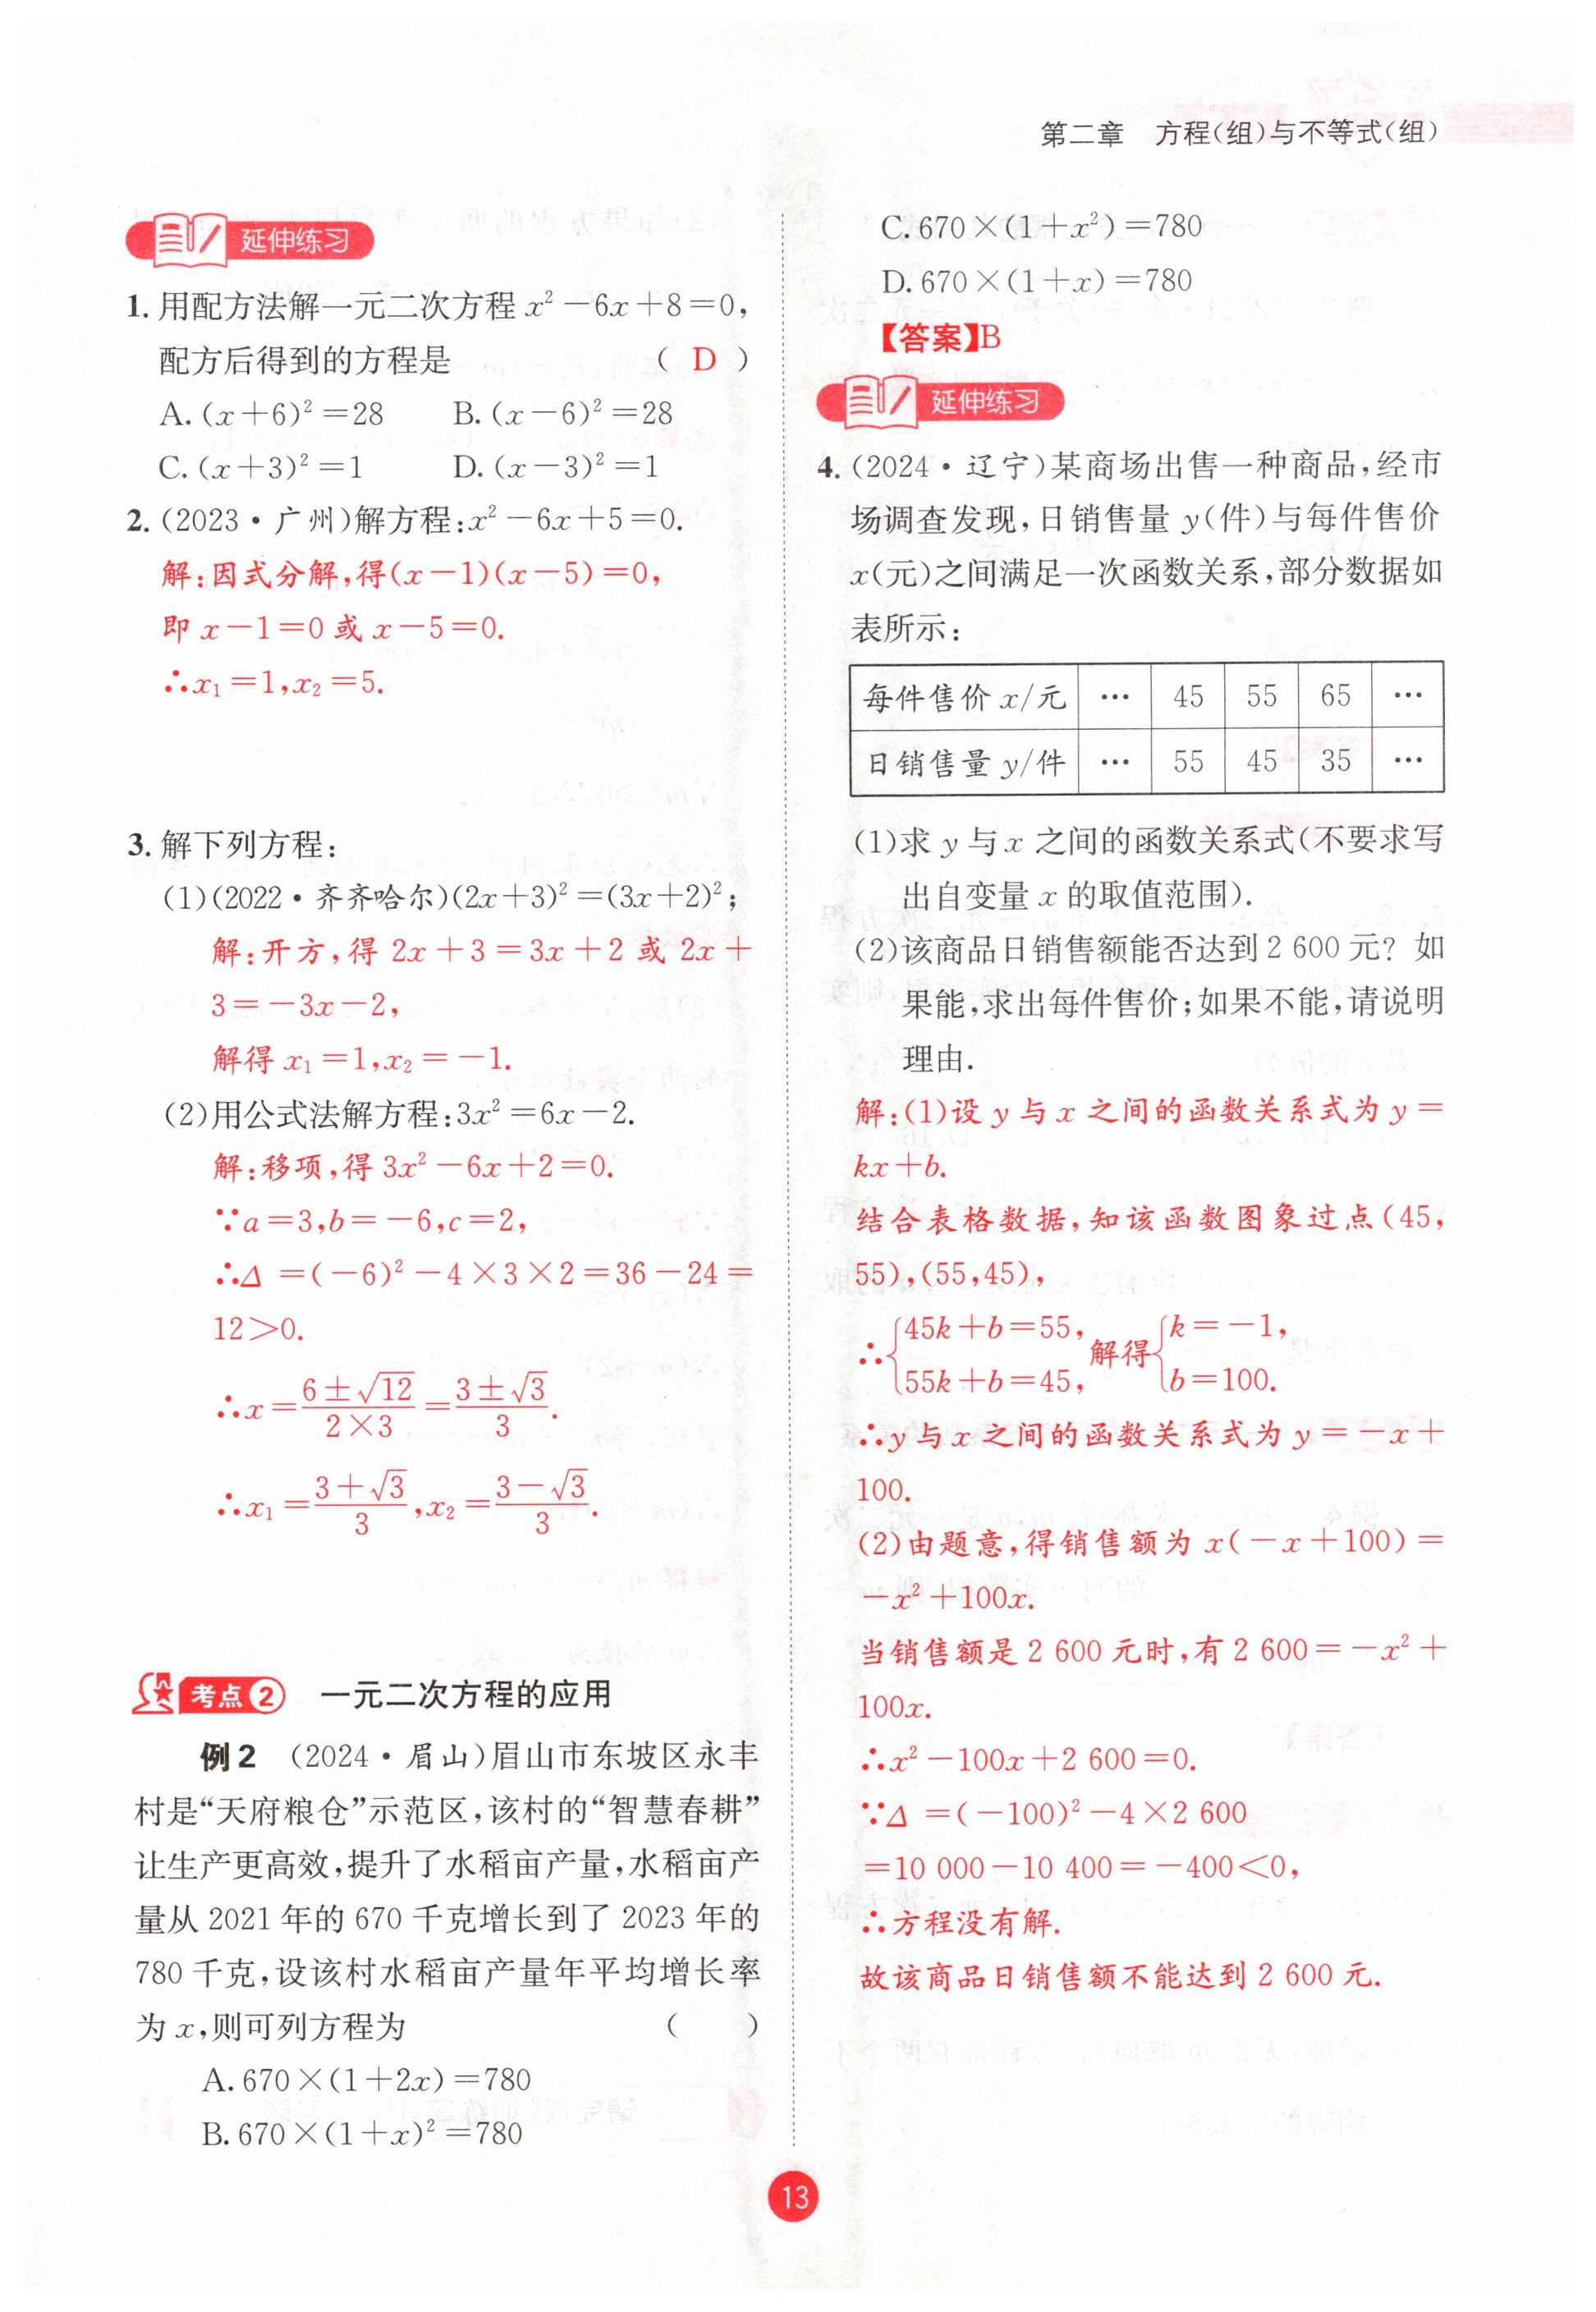 第二章 方程(组)与不等式(组)
延伸练习
1. 用配方法解一元二次方程 x²－6x＋8＝0，
配方后得到的方程是 （ D ）
A. (x＋6)²＝28 B. (x－6)²＝28
C. (x＋3)²＝1 D. (x－3)²＝1
2. (2023·广州)解方程：x²－6x＋5＝0.
解：因式分解，得(x－1)(x－5)＝0，
即 x－1＝0 或 x－5＝0.
∴x₁＝1，x₂＝5.
3. 解下列方程：
(1)(2022·齐齐哈尔)(2x＋3)²＝(3x＋2)²；
解：开方，得 2x＋3＝3x＋2 或 2x＋
3＝－3x－2，
解得 x₁＝1，x₂＝－1.
(2)用公式法解方程：3x²＝6x－2.
解：移项，得 3x²－6x＋2＝0.
∵a＝3，b＝－6，c＝2，
∴Δ＝(－6)²－4×3×2＝36－24＝
12＞0.
∴x＝(6±√12)/(2×3)＝(3±√3)/3.
∴x₁＝(3＋√3)/3，x₂＝(3－√3)/3.
考点2 一元二次方程的应用
例2 (2024·眉山)眉山市东坡区永丰
村是“天府粮仓”示范区，该村的“智慧春耕”
让生产更高效，提升了水稻亩产量，水稻亩产
量从 2021 年的 670 千克增长到了 2023 年的
780 千克，设该村水稻亩产量年平均增长率
为 x，则可列方程为 （ ）
A. 670×(1＋2x)＝780
B. 670×(1＋x)²＝780
C. 670×(1＋x²)＝780
D. 670×(1＋x)＝780
【答案】B
延伸练习
4. (2024·辽宁)某商场出售一种商品，经市
场调查发现，日销售量 y(件)与每件售价
x(元)之间满足一次函数关系，部分数据如
表所示：
每件售价 x/元 … 45 55 65 …
日销售量 y/件 … 55 45 35 …
(1)求 y 与 x 之间的函数关系式(不要求写
出自变量 x 的取值范围).
(2)该商品日销售额能否达到 2 600 元？如
果能，求出每件售价；如果不能，请说明
理由.
解：(1)设 y 与 x 之间的函数关系式为 y＝
kx＋b.
结合表格数据，知该函数图象过点(45，
55)，(55，45)，
∴{45k＋b＝55，55k＋b＝45，解得{k＝－1，b＝100.
∴y 与 x 之间的函数关系式为 y＝－x＋
100.
(2)由题意，得销售额为 x(－x＋100)＝
－x²＋100x.
当销售额是 2 600 元时，有 2 600＝－x²＋
100x.
∴x²－100x＋2 600＝0.
∵Δ＝(－100)²－4×2 600
＝10 000－10 400＝－400＜0，
∴方程没有解.
故该商品日销售额不能达到 2 600 元.
13